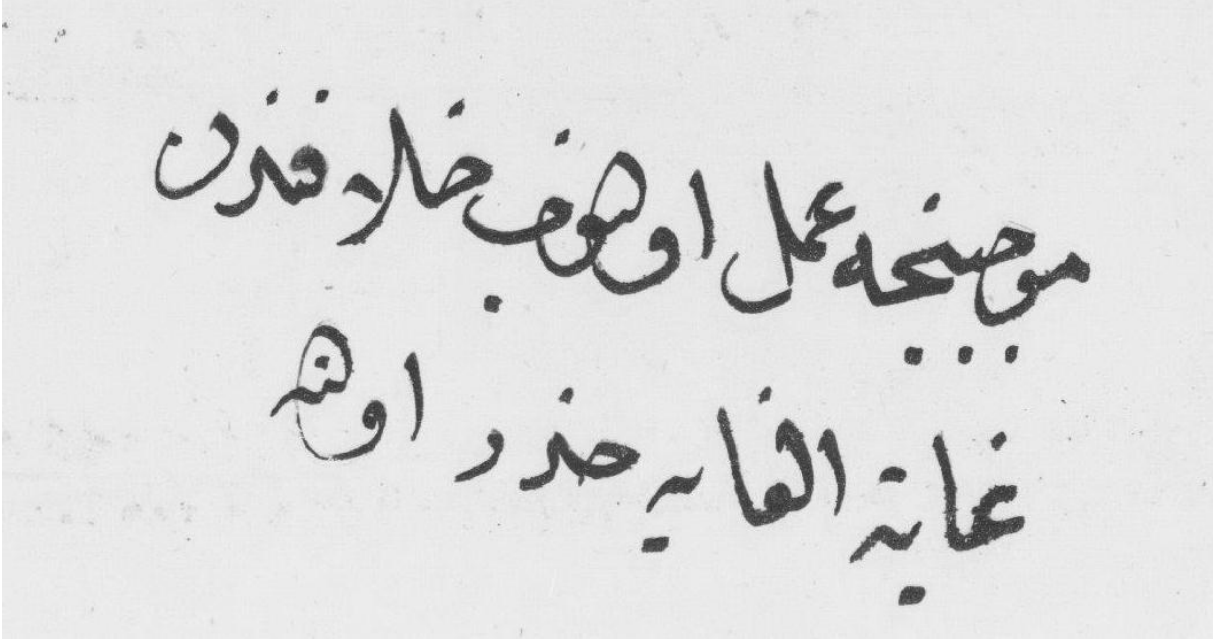 موجبنجه عمل اولنوب خلافندن
غاية الغايه حذر اولنه